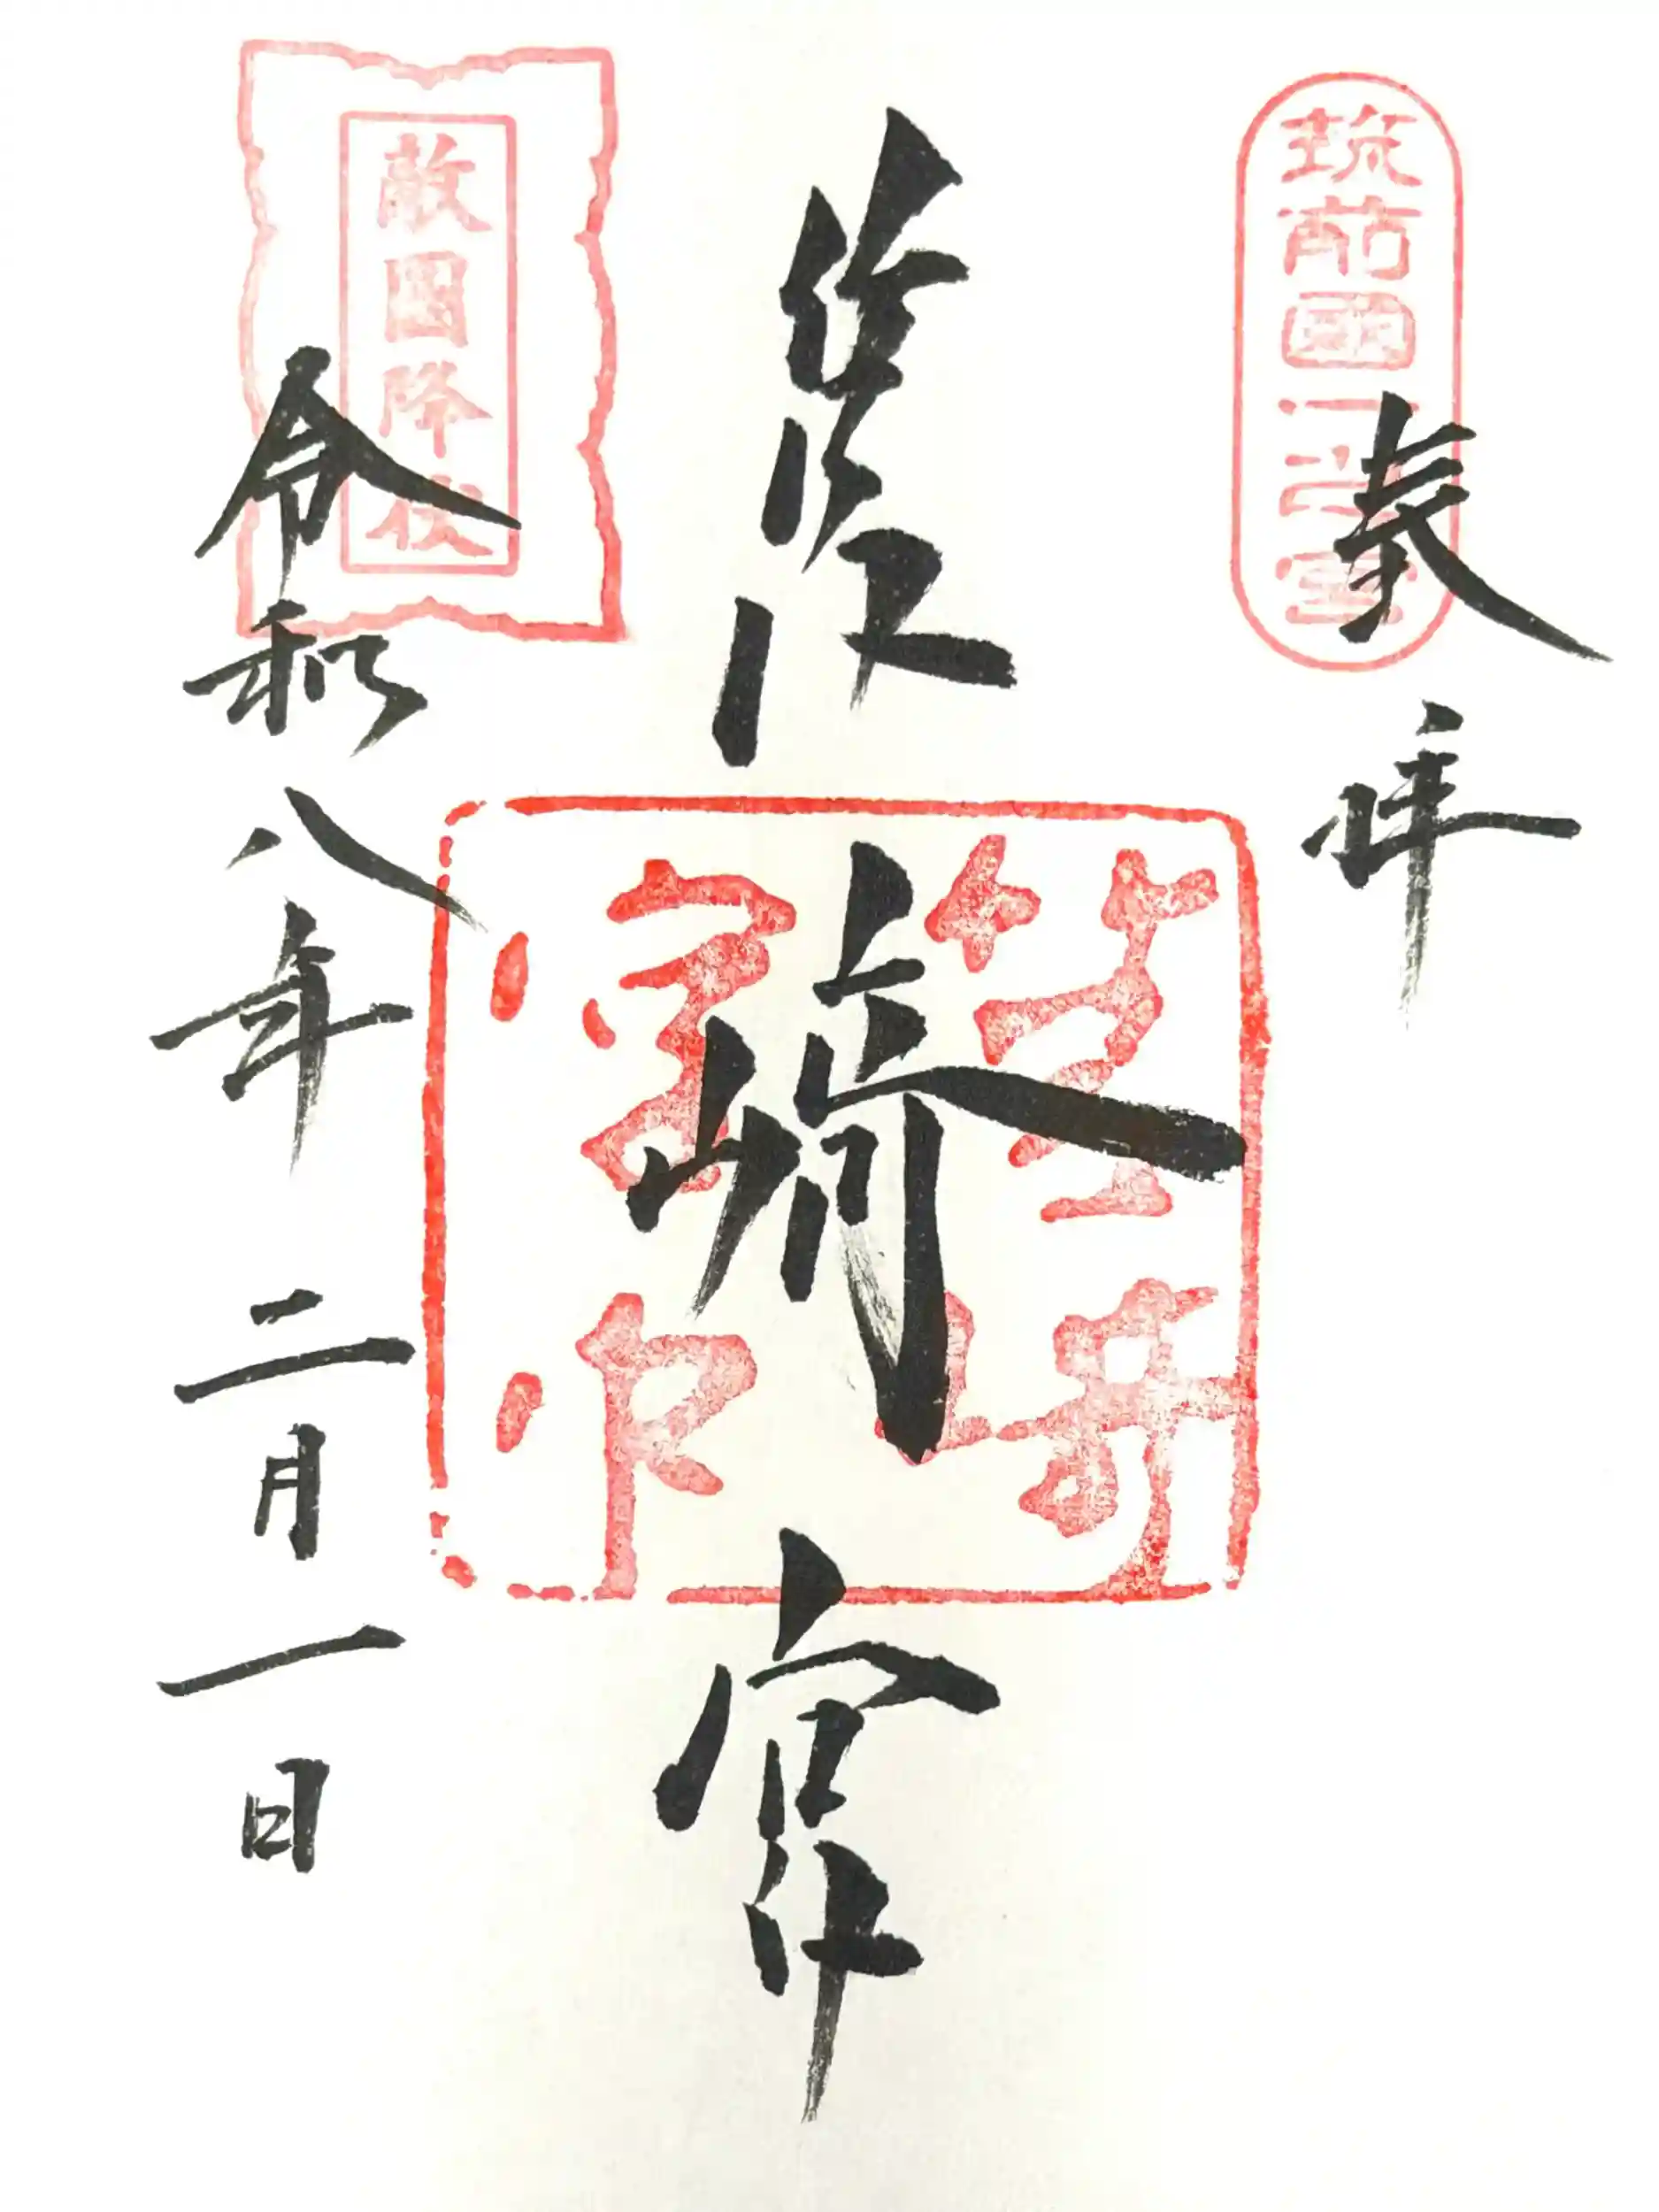 筑前國一之宮
奉拝
筥崎宮
筥崎宮印
敵國降伏
令和八年二月一日